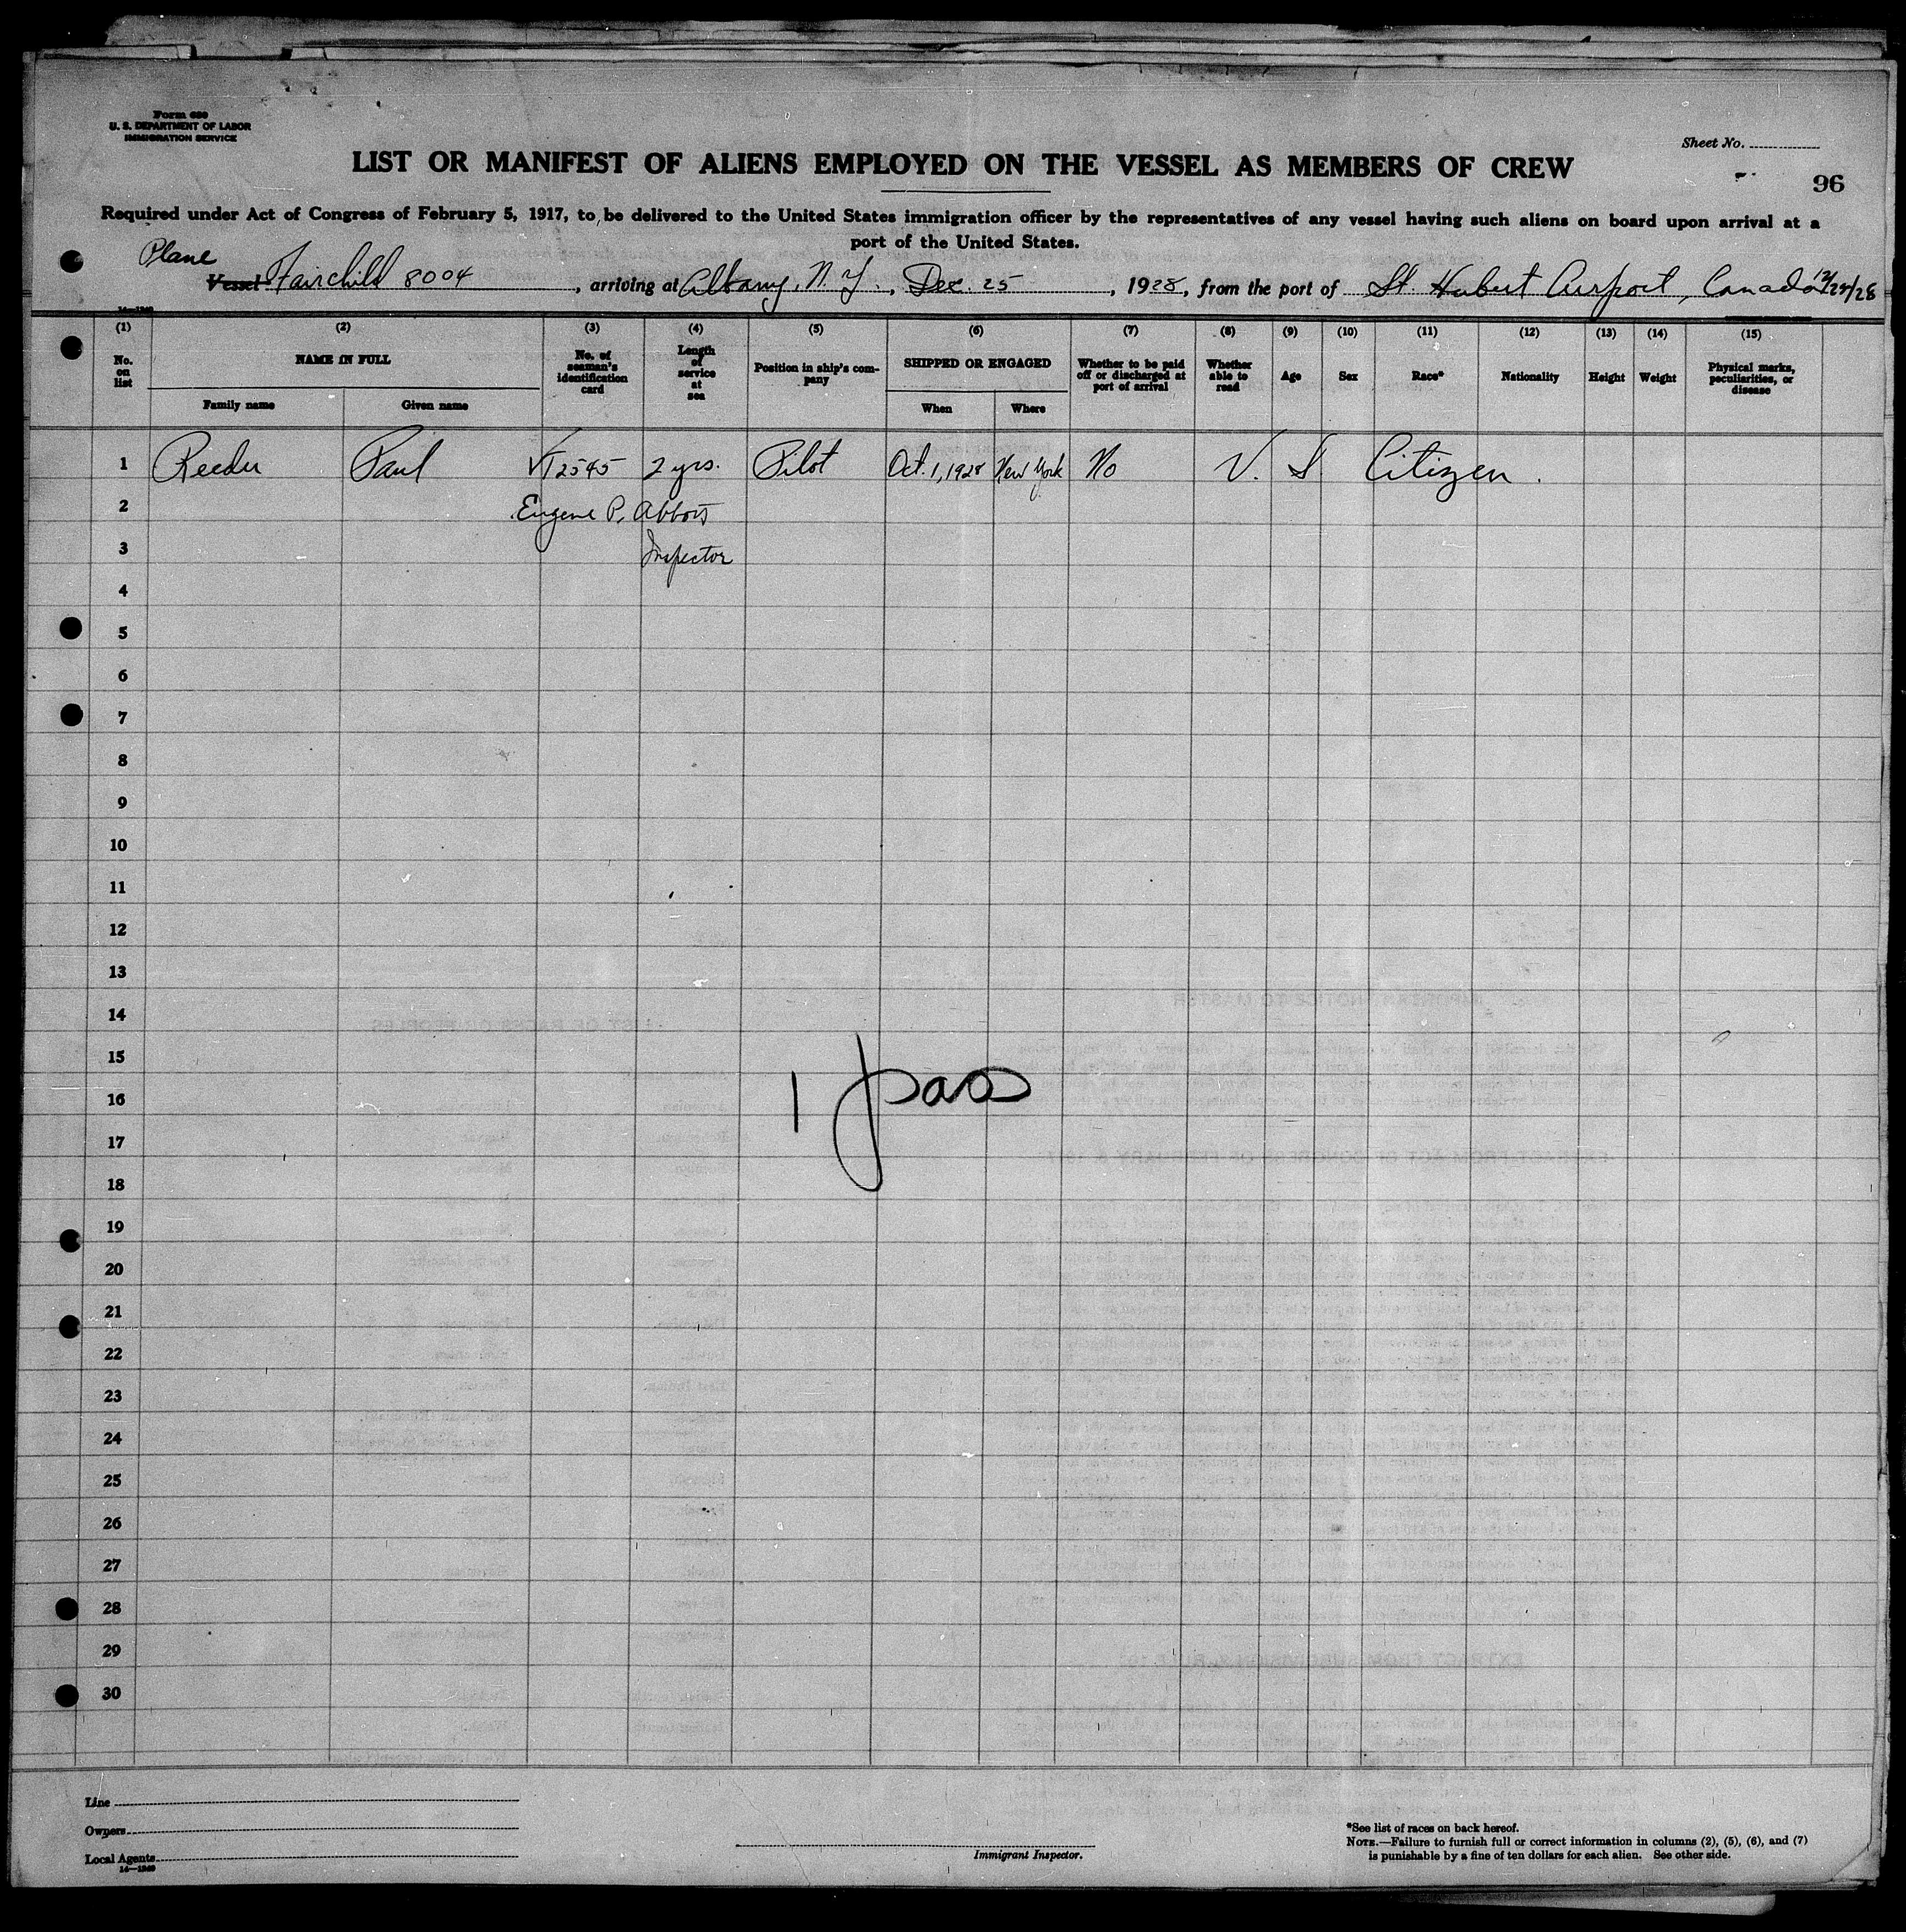 Form 680
U. S. DEPARTMENT OF LABOR
IMMIGRATION SERVICE
Sheet No.
LIST OR MANIFEST OF ALIENS EMPLOYED ON THE VESSEL AS MEMBERS OF CREW
96
Required under Act of Congress of February 5, 1917, to be delivered to the United States immigration officer by the representatives of any vessel having such aliens on board upon arrival at a
port of the United States.
Plane
Vessel Fairchild 8004, arriving at Albany, N. Y., Dec. 25, 1928, from the port of St. Hubert Airport, Canada
(1) (2) (3) (4) (5) (6) (7) (8) (9) (10) (11) (12) (13) (14) (15)
No. on list NAME IN FULL No. of seaman's identification card Length of service at sea Position in ship's company SHIPPED OR ENGAGED Whether to be paid off or discharged at port of arrival Whether able to read Age Sex Race* Nationality Height Weight Physical marks, peculiarities, or disease
Family name Given name When Where
1 Reeder Paul 2545 2 yrs. Pilot Oct. 1, 1928 New York No U. S. Citizen.
2 Eugene P. Abbott
3 Inspector
4
5
6
7
8
9
10
11
12
13
14
15
16 1 pass
17
18
19
20
21
22
23
24
25
26
27
28
29
30
Line
Owners
Local Agents
14—1240
Immigrant Inspector.
*See list of races on back hereof.
NOTE.—Failure to furnish full or correct information in columns (2), (5), (6), and (7)
is punishable by a fine of ten dollars for each alien. See other side.